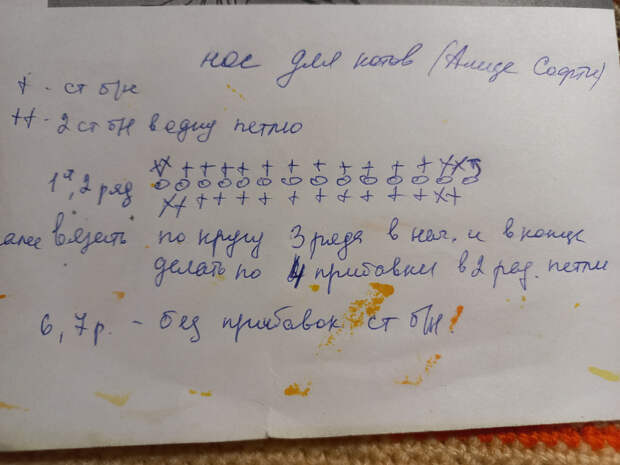 нос для котов (Алисе Софти)
+ - ст б/н
++ - 2 ст бн в одну петлю
1й, 2 ряд
алее вязать по кругу 3 ряда в нач. и в конце
делать по 4 прибавки в 2 ряд. петли
6, 7 р. - без прибавок ст б/н!